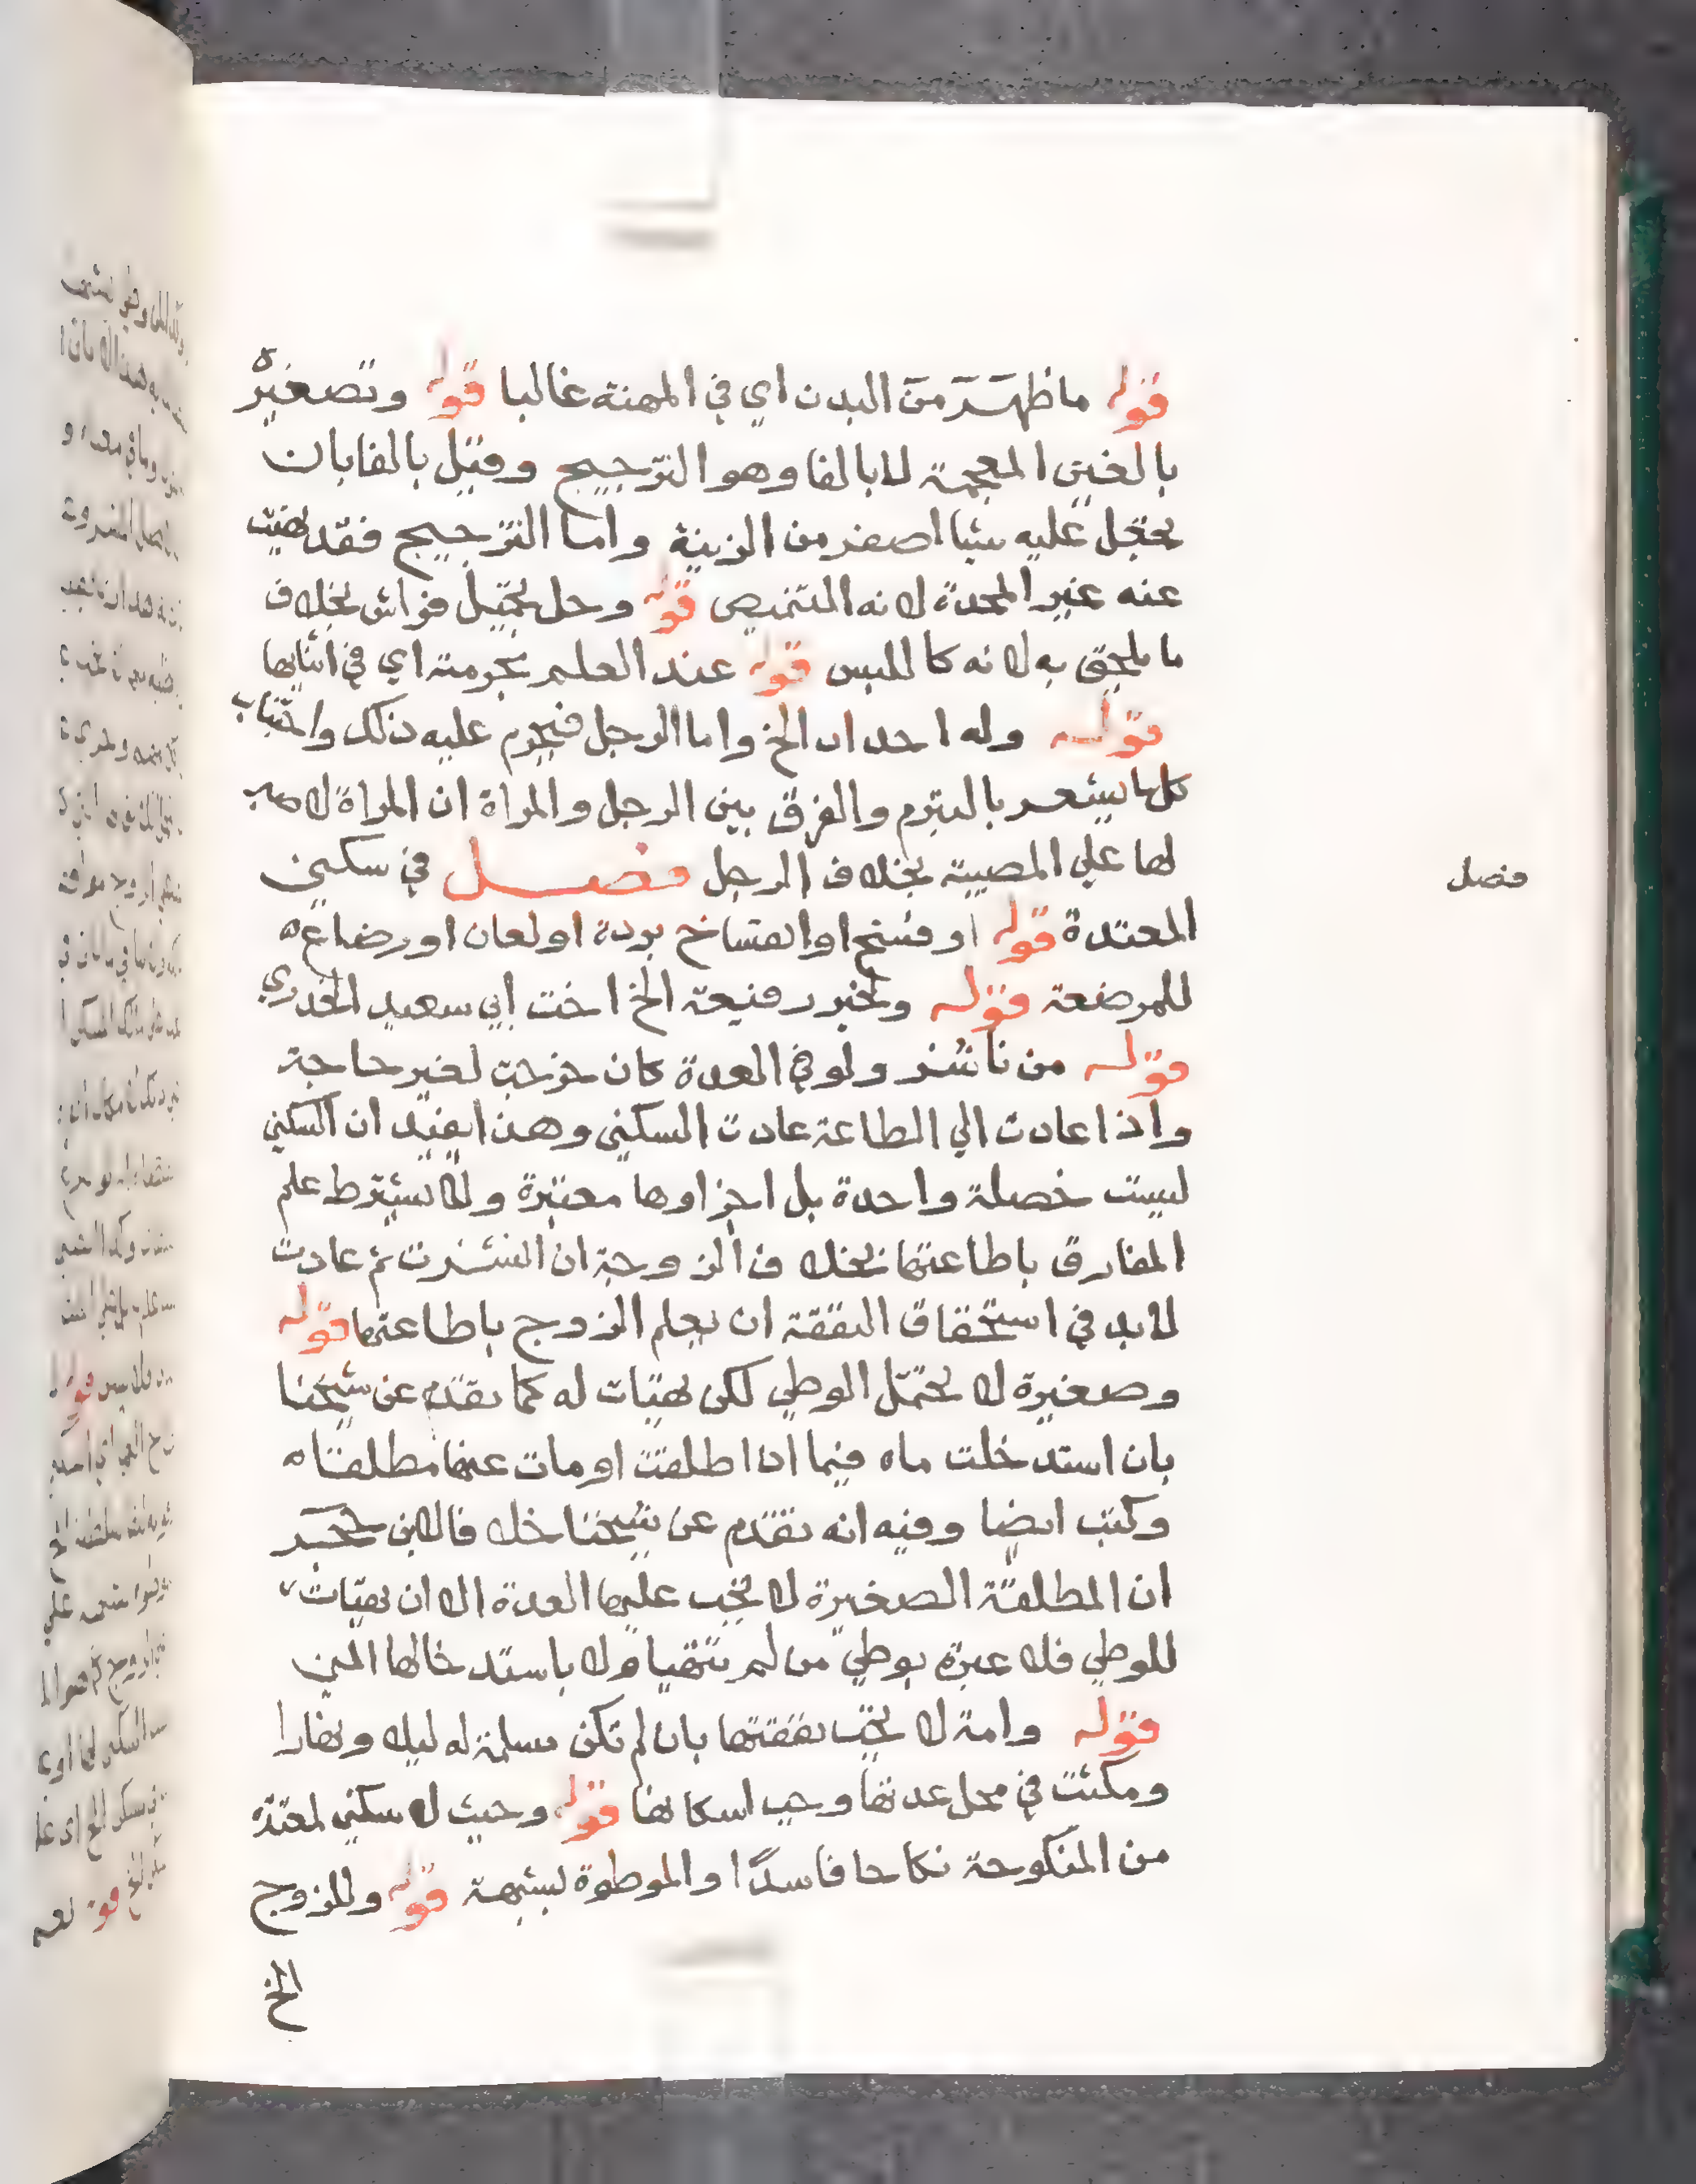 قوله ما ظهر من البدن اي في المهنة غالبا قوله وتصغيره
بالغين المعجمة لا بالفا وهو الترجيج وقيل بالفا بان
يجعل عليه شيا اصفر من الزينة واما الترجيج فقد نهيت
عنه غير المحدة لانه التنميص قوله وحل تجميل فراش بخلاف
ما يلتحق به لانه كاللبس قوله عند العلم بحرمته اي في اثنايها
قوله وله احداد الخ واما الرجل فيحرم عليه ذلك واجتناب
كل ما يشعر بالتبرم والفرق بين الرجل والمراة ان المراة لا صبر
لها علي المصيبة بخلاف الرجل فصل في سكني
فصل
المعتدة قوله او فسخ او انفساخ بردة او لعان او رضاع ه
للمرضعة قوله ولخبر رفيعة الخ اخت ابي سعيد الخدري
قوله من ناشز ولو في العدة كان خرجت لغير حاجة
واذا عادت الي الطاعة عادت السكني وهذا يفيد ان السكني
ليست خصلة واحدة بل اجزاوها معتبرة ولا يشترط علم
المفارق باطاعتها بخلاف الزوجة ان نشزت ثم عادت
لابد في استحقاق النفقة ان يعلم الزوج باطاعتها قوله
وصغيرة لا تحتمل الوطي لكن تهيات له كما تقدم عن شيخنا
بان استدخلت ماه فيما اذا طلقت او مات عنها مطلقا ه
وكتب ايضا وفيه انه تقدم عن شيخنا خلافا لابن حجر
ان المطلقة الصغيرة لا تجب عليها العدة الا ان تهيات
للوطي فلا عبرة بوطي من لم تتهيا ولا باستدخالها المني
قوله وامة لا تجب نفقتها بان لم تكن مسلمة له ليلا ونهارا
ومكثت في محل عدتها وجب اسكانها قوله وحيث لا سكني لمعتدة
من المنكوحة نكاحا فاسدا والموطوة بشبهة قوله وللزوج
الخ